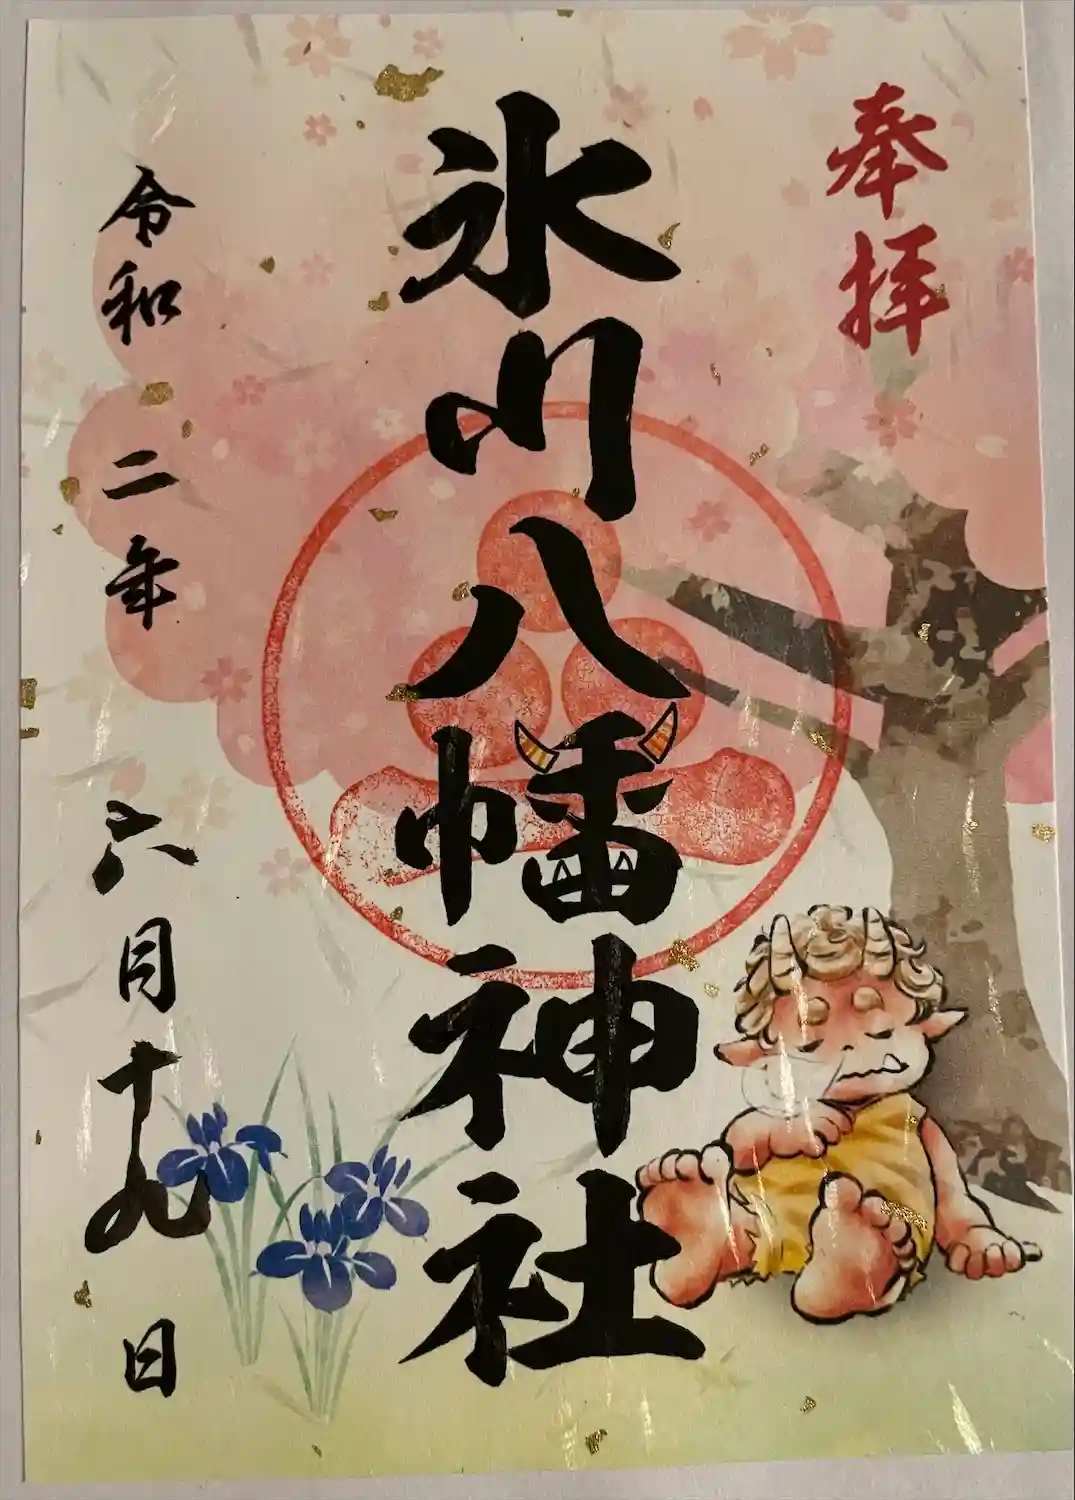 奉拝
氷川八幡神社
令和二年六月十九日